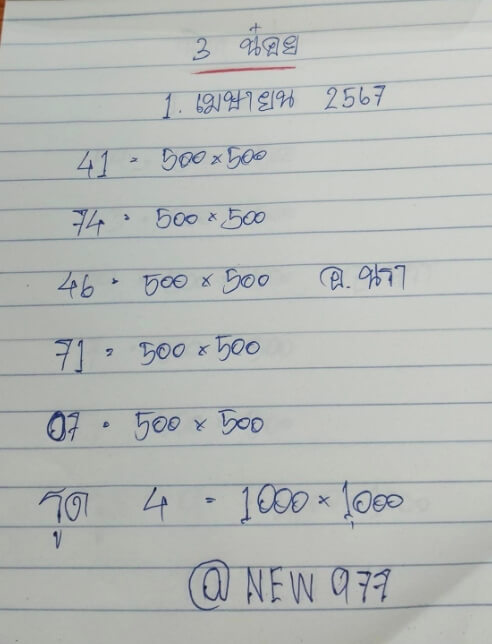 3 น้อย
1. เมษายน 2567
41 = 500 × 500
74 = 500 × 500
46 = 500 × 500 อ. นรา
71 = 500 × 500
07 = 500 × 500
รูด 4 = 1000 × 1000
@ NEW 977